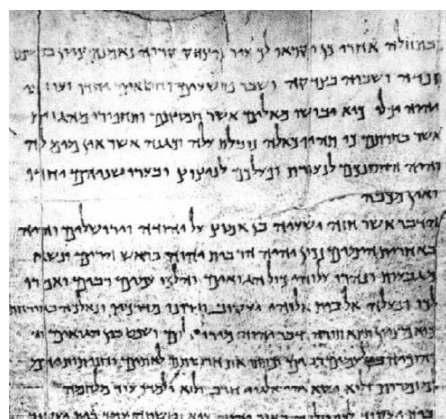 כבתחלה אחרי כן יקראו לך עיר הצדק קריה נאמנה ציון
תפדה ושביה בצדקה ושבר פושעים וחטאים יחדו
יהוה יכלו כיא יבושו מאלים אשר חמדתם ותחפורו מהגנות
אשר בחרתם כי תהיו כאלה נובלת עלה וכגנה אשר אין מים לה
והיה החסנכם לנעורת ופעלכם לניצוץ ובערו שניהם יחדיו
ואין מכבה
הדבר אשר חזה ישעיה בן אמוץ על יהודה וירושלים והיה
באחרית הימים נכון יהיה הר בית יהוה בראש הרים ונשא
מגבעות ונהרו עלוהי כול הגואים והלכו עמים רבים ואמרו
לכו ונעלה אל בית אלוהי יעקוב וירונו מדרכיו ונלכה באורחותיו
כיא מציון תצא תורה ודבר יהוה ושפט בין הגואים
והוכיח לעמים רבים וכתתו את חרבותם לאתים
למזמרות ולוא ישא גוי אל גוי חרב ולוא ילמדו עוד מלחמה